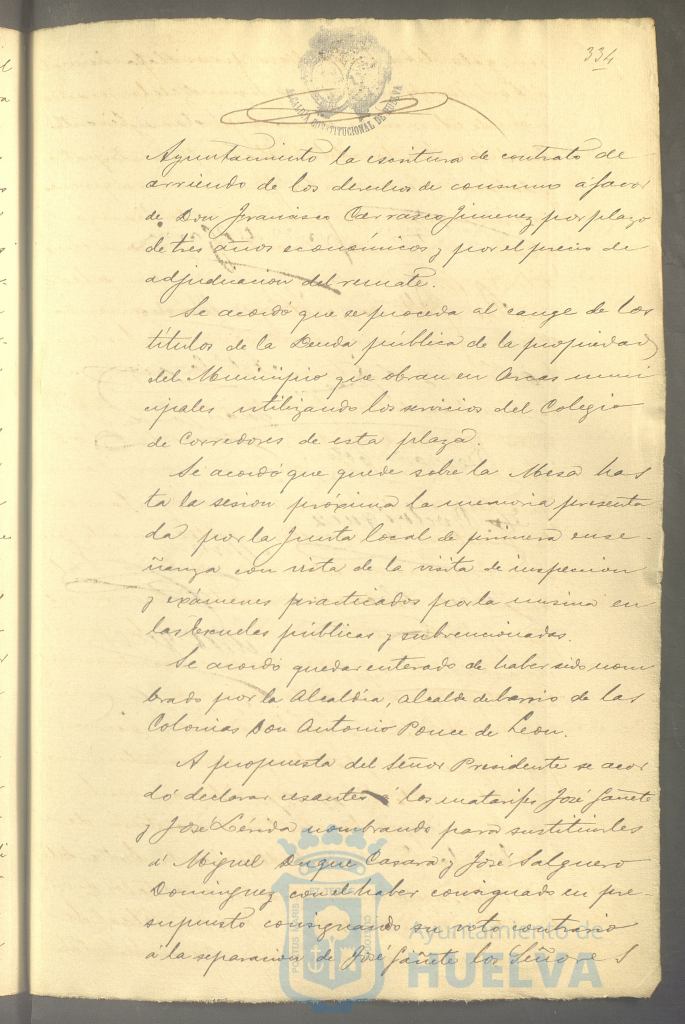 334
ALCALDIA CONSTITUCIONAL DE HUELVA
Ayuntamiento la escritura de contrato de
arriendo de los derechos de consumo á favor
de Don Francisco Carrasco Jimenez por plazo
de tres años económicos y por el precio de
adjudicacion del remate.
Se acordó que se proceda al cange de los
títulos de la Deuda pública de la propiedad
del Municipio que obran en Arcas muni
cipales utilizando los servicios del Colegio
de Corredores de esta plaza.
Se acordó que quede sobre la Mesa has
ta la sesion próxima la memoria presenta
da por la Junta local de primera ense-
ñanza con vista de la visita de inspeccion
y exámenes practicados por la misma en
las escuelas públicas y subvencionadas.
Se acordó quedar enterado de haber sido nom
brado por la Alcaldía, alcalde de barrio de las
Colonias Don Antonio Ponce de Leon.
A propuesta del Señor Presidente se acor
dó declarar cesantes á los matarifes José Gañete
y José Lérida nombrando para sustituirles
á Miguel Duque Casara y José Salguero
Dominguez con el haber consignado en pre-
supuesto consignando su voto contrario
á la separacion de José Gañete los Señores
Ayuntamiento de
HUELVA